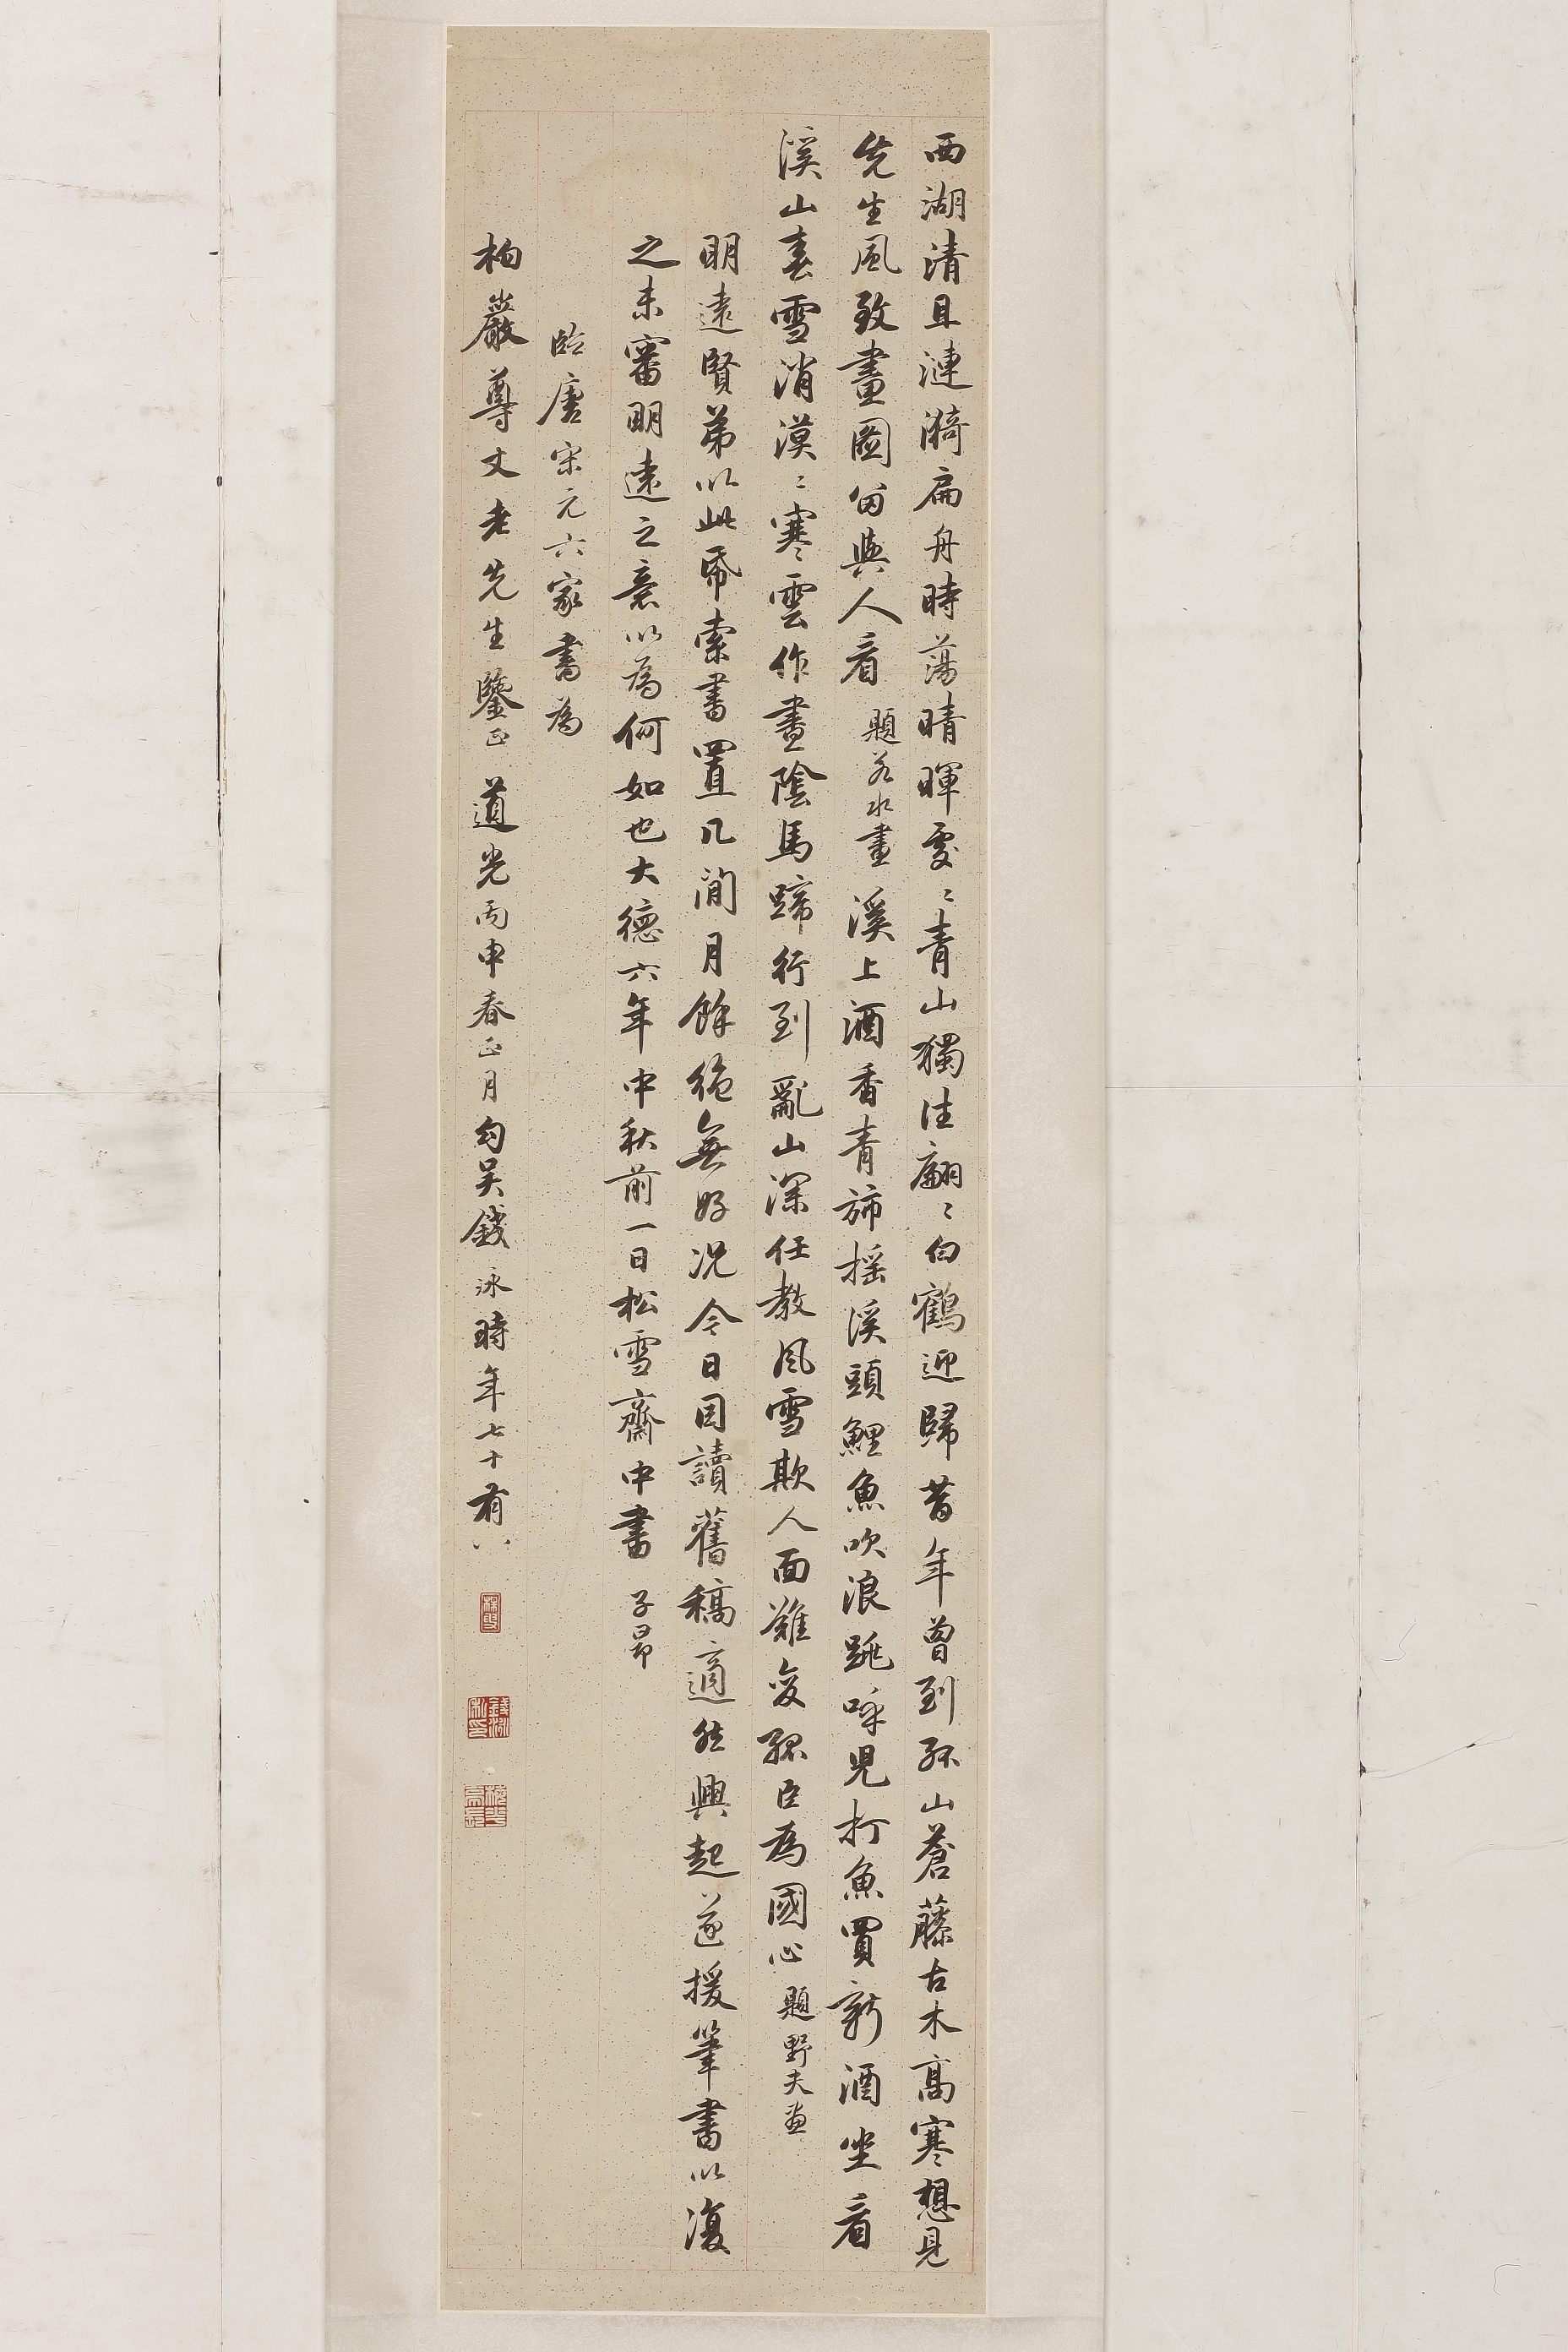 西湖清且漣漪扁舟時蕩晴暉處〻青山獨往翩〻白鶴迎歸昔年曾到孤山蒼藤古木高寒想見
先生風致畫圖留與人看 題若水畫 溪上酒香青旆搖溪頭鯉魚吹浪跳呼兒打魚買新酒坐看
溪山春雪消漠〻寒雲作晝陰馬蹄行到亂山深任教風雪欺人面難變孤臣為國心 題野夫畫
明遠賢弟以此帋索書置几間月餘絶無好况今日因讀舊稿適然興起遂援筆書以復
之未審明遠之意以為何如也大德六年中秋前一日松雪齋中書 子昂
臨唐宋元六家書為
柏巖尊丈老先生鑒正 道光丙申春正月勾吳錢泳時年七十有八